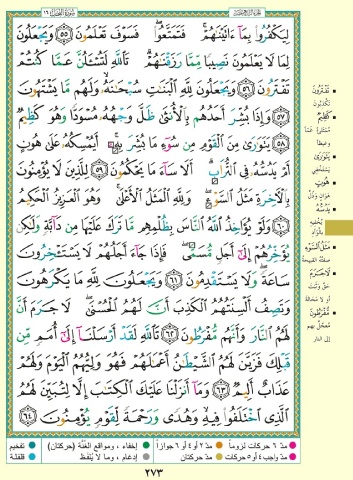 سُورَةُ النَّحْلِ ١٦
لِيَكْفُرُوا۟ بِمَآ ءَاتَيْنَٰهُمْ ۚ فَتَمَتَّعُوا۟ ۖ فَسَوْفَ تَعْلَمُونَ ٥٥ وَيَجْعَلُونَ
لِمَا لَا يَعْلَمُونَ نَصِيبًا مِّمَّا رَزَقْنَٰهُمْ ۗ تَٱللَّهِ لَتُسْـَٔلُنَّ عَمَّا كُنتُمْ
تَفْتَرُونَ ٥٦ وَيَجْعَلُونَ لِلَّهِ ٱلْبَنَٰتِ سُبْحَٰنَهُۥ ۙ وَلَهُم مَّا يَشْتَهُونَ
٥٧ وَإِذَا بُشِّرَ أَحَدُهُم بِٱلْأُنثَىٰ ظَلَّ وَجْهُهُۥ مُسْوَدًّا وَهُوَ كَظِيمٌ
٥٨ يَتَوَٰرَىٰ مِنَ ٱلْقَوْمِ مِن سُوٓءِ مَا بُشِّرَ بِهِۦٓ ۚ أَيُمْسِكُهُۥ عَلَىٰ هُونٍ
أَمْ يَدُسُّهُۥ فِى ٱلتُّرَابِ ۗ أَلَا سَآءَ مَا يَحْكُمُونَ ٥٩ لِلَّذِينَ لَا يُؤْمِنُونَ
بِٱلْـَٔاخِرَةِ مَثَلُ ٱلسَّوْءِ ۖ وَلِلَّهِ ٱلْمَثَلُ ٱلْأَعْلَىٰ ۚ وَهُوَ ٱلْعَزِيزُ ٱلْحَكِيمُ
٦٠ وَلَوْ يُؤَاخِذُ ٱللَّهُ ٱلنَّاسَ بِظُلْمِهِم مَّا تَرَكَ عَلَيْهَا مِن دَآبَّةٍ وَلَٰكِن
يُؤَخِّرُهُمْ إِلَىٰٓ أَجَلٍ مُّسَمًّى ۖ فَإِذَا جَآءَ أَجَلُهُمْ لَا يَسْتَـْٔخِرُونَ
سَاعَةً ۖ وَلَا يَسْتَقْدِمُونَ ٦١ وَيَجْعَلُونَ لِلَّهِ مَا يَكْرَهُونَ
وَتَصِفُ أَلْسِنَتُهُمُ ٱلْكَذِبَ أَنَّ لَهُمُ ٱلْحُسْنَىٰ ۖ لَا جَرَمَ أَنَّ
لَهُمُ ٱلنَّارَ وَأَنَّهُم مُّفْرَطُونَ ٦٢ تَٱللَّهِ لَقَدْ أَرْسَلْنَآ إِلَىٰٓ أُمَمٍ مِّن
قَبْلِكَ فَزَيَّنَ لَهُمُ ٱلشَّيْطَٰنُ أَعْمَٰلَهُمْ فَهُوَ وَلِيُّهُمُ ٱلْيَوْمَ وَلَهُمْ
عَذَابٌ أَلِيمٌ ٦٣ وَمَآ أَنزَلْنَا عَلَيْكَ ٱلْكِتَٰبَ إِلَّا لِتُبَيِّنَ لَهُمُ
ٱلَّذِى ٱخْتَلَفُوا۟ فِيهِ ۙ وَهُدًى وَرَحْمَةً لِّقَوْمٍ يُؤْمِنُونَ ٦٤
تَفْتَرُونَ
تَكْذِبُونَ
كَظِيمٌ
مُمْتَلِئٌ غَمًّا
وغيظًا
يَتَوَارَىٰ
يَسْتَخْفِي
هُونٍ
هَوَانٍ وَذُلٍّ
يَدُسُّهُ
يُخْفِيهِ
بالوَأْدِ
مَثَلُ السَّوْءِ
صفتُهُ القبيحةُ
لَا جَرَمَ
حَقَّ وثَبَتَ
أو لا مَحَالةَ
مُّفْرَطُونَ
مُعَجَّلٌ بِهِم
إلى النارِ
مدّ ٦ حركات لزوماً
مدّ ٢ أو ٤ أو ٦ جوازاً
إخفاء، ومواقع الغُنَّة (حركتان)
تفخيم
مدّ واجب ٤ أو ٥ حركات
مدّ حركتان
إدغام، وما لا يُلفَظ
قلقلة
٢٧٣